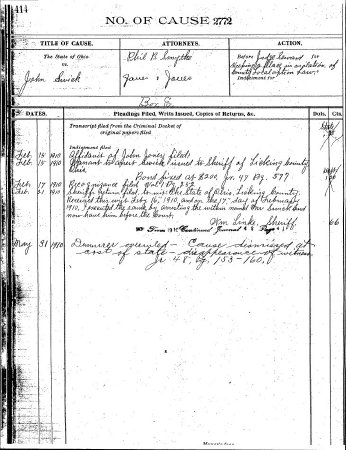 414
NO. OF CAUSE 2772
TITLE OF CAUSE. ATTORNEYS. ACTION.
The State of Ohio Phil B Smythe Before Judge Seward
vs. Indictment for
Keeping a Place in violation of
John Swick Jones & Jones County Local option Law.
Box E
DATES. Pleadings Filed, Writs Issued, Copies of Returns, &c. Dols. Cts.
Transcript filed from the Criminal Docket of
original papers filed
Indictment filed
Feb. 15 1910 Affidavit of John Jones filed
Feb. 15 1910 Warrant to arrest Swick issued to Sheriff of Licking County
Ohio
Bond fixed at $200 Jr. 47 Pg. 577
Feb. 17 1910 Recognizance filed
Feb. 21 1910 Sheriffs return filed to wit: The State of Ohio, Licking County.
Received this writ Feb. 16, 1910, and on the 17th day of February
1910, I executed the same by arresting the within named John Swick and
now have him before the Court.
Wm Link Sheriff. 66
From Continued Journal Page
May 31 1910 Demurrer overruled - Cause dismissed at
cost of state - disappearance of witness
Jr 48, Pg. 153-160.